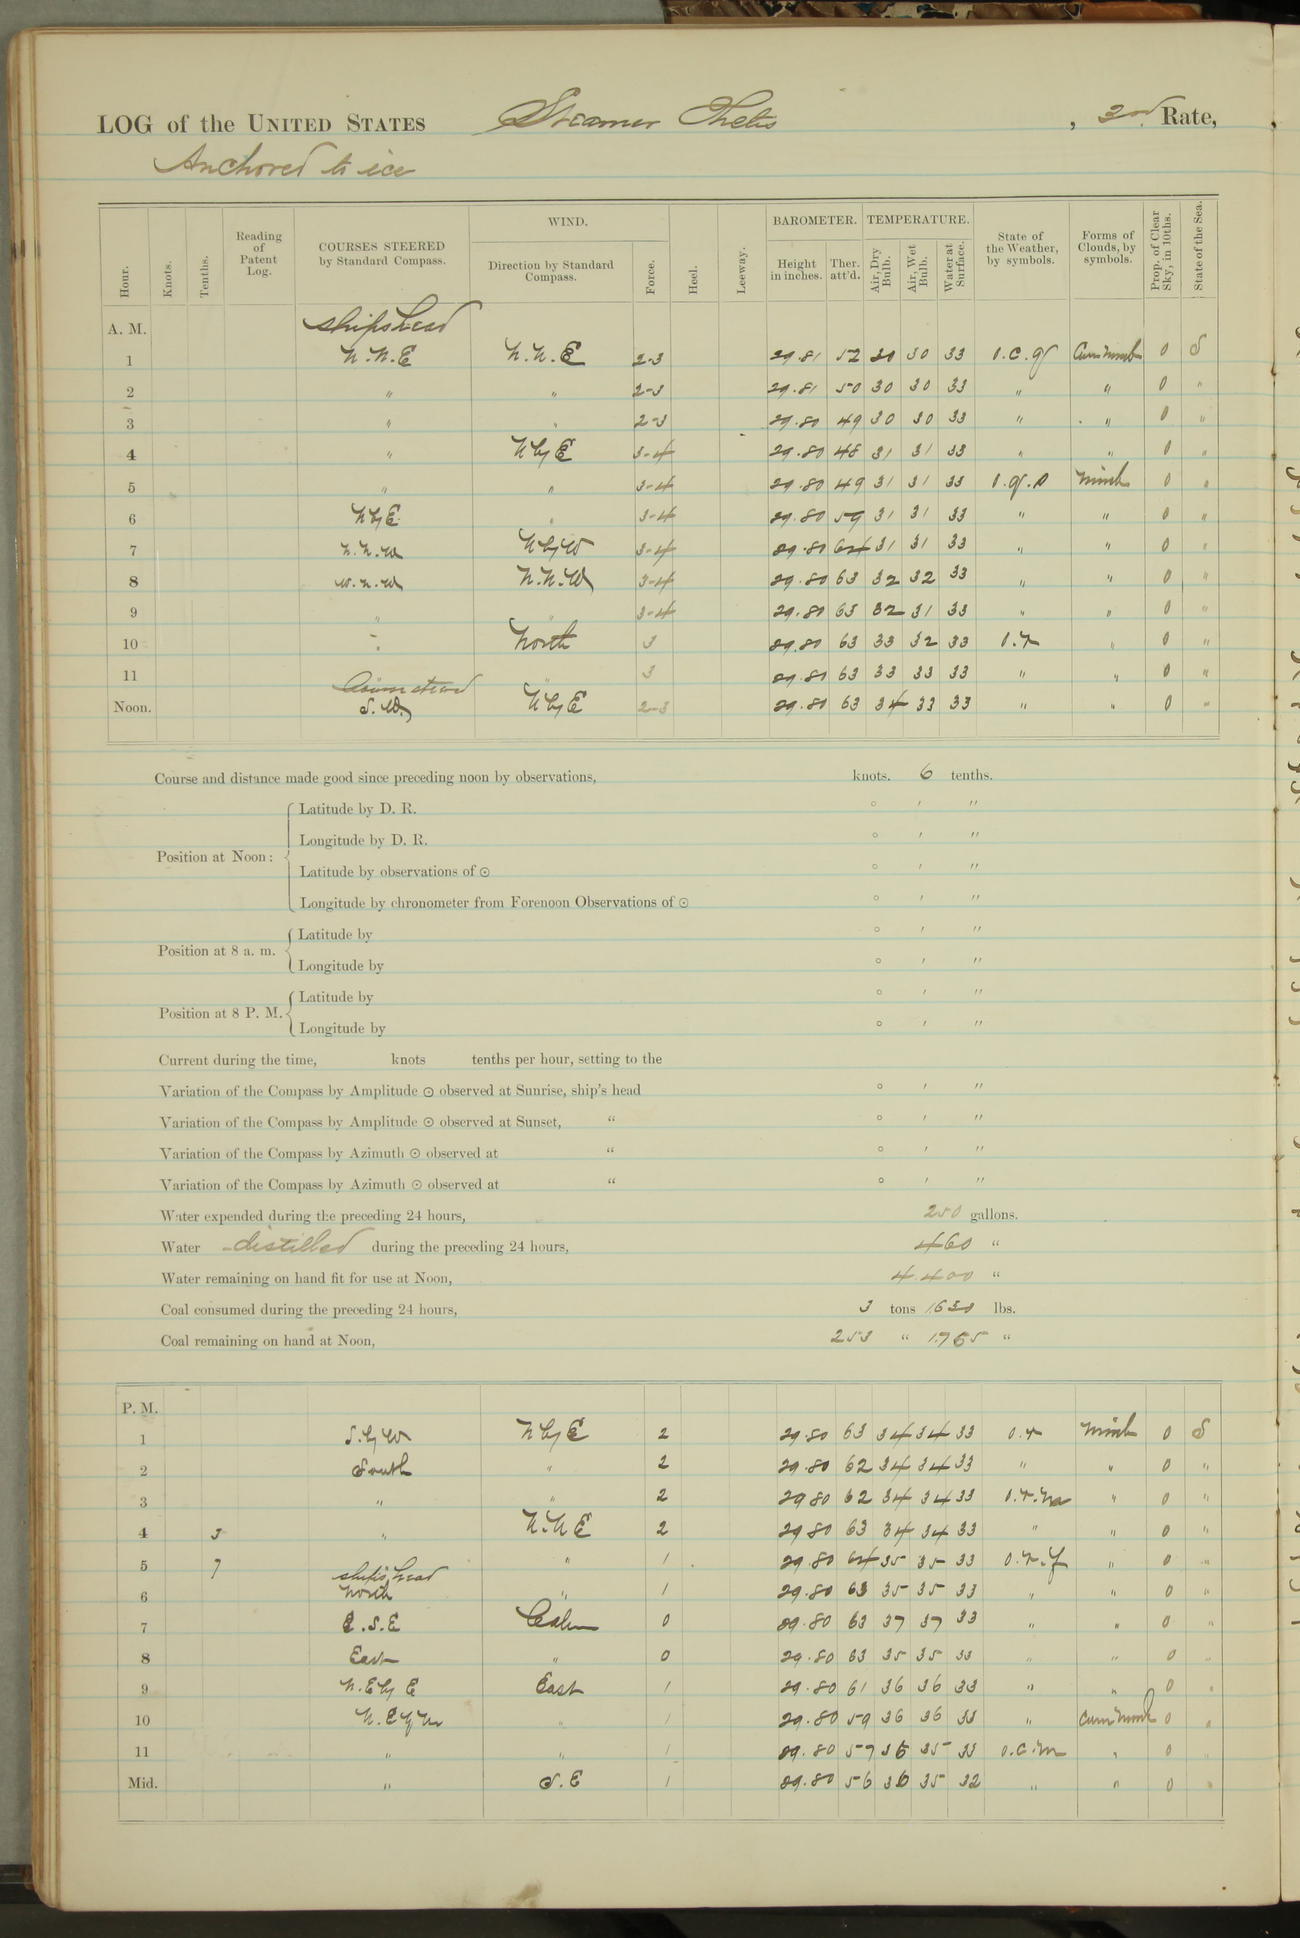 LOG of the UNITED STATES Steamer Thetis , 3rd Rate,
Anchored to ice
Hour. Knots. Tenths. Reading of Patent Log. COURSES STEERED by Standard Compass. WIND. Direction by Standard Compass. Force. Heel. Leeway. BAROMETER. Height in inches. Ther. att'd. TEMPERATURE. Air, Dry Bulb. Air, Wet Bulb. Water at Surface. State of the Weather, by symbols. Forms of Clouds, by symbols. Prop. of Clear Sky, in 10ths. State of the Sea.
A. M. Ships head
1 N.N.E N.N.E 2-3 29.81 52 30 30 33 O.C.G Cum Nimb 0 S
2 " " 2-3 29.81 50 30 30 33 " " 0 "
3 " " 2-3 29.80 49 30 30 33 " " 0 "
4 " N by E 3-4 29.80 48 31 31 33 " " 0 "
5 " " 3-4 29.80 49 31 31 33 O.G.S Nimb 0 "
6 N by E " 3-4 29.80 59 31 31 33 " " 0 "
7 N.N.W N by W 3-4 29.80 64 31 31 33 " " 0 "
8 W.N.W N.N.W 3-4 29.80 63 32 32 33 " " 0 "
9 " " 3-4 29.80 63 32 31 33 " " 0 "
10 " North 3 29.80 63 33 32 33 O.r " 0 "
11 " 3 29.80 63 33 33 33 " " 0 "
Noon. S.W. N by E 2-3 29.80 63 34 33 33 " " 0 "
Course and distance made good since preceding noon by observations, knots. 6 tenths.
Position at Noon: Latitude by D. R. ° ' "
Longitude by D. R. ° ' "
Latitude by observations of ⊙ ° ' "
Longitude by chronometer from Forenoon Observations of ⊙ ° ' "
Position at 8 a. m. Latitude by ° ' "
Longitude by ° ' "
Position at 8 P. M. Latitude by ° ' "
Longitude by ° ' "
Current during the time, knots tenths per hour, setting to the
Variation of the Compass by Amplitude ⊙ observed at Sunrise, ship's head ° ' "
Variation of the Compass by Amplitude ⊙ observed at Sunset, " ° ' "
Variation of the Compass by Azimuth ⊙ observed at " ° ' "
Variation of the Compass by Azimuth ⊙ observed at " ° ' "
Water expended during the preceding 24 hours, 250 gallons.
Water distilled during the preceding 24 hours, 460 "
Water remaining on hand fit for use at Noon, 4.400 "
Coal consumed during the preceding 24 hours, 3 tons 1630 lbs.
Coal remaining on hand at Noon, 253 " 1.765 "
P. M.
1 S. by W N by E 2 29.80 63 34 34 33 O.r Nimb 0 S
2 South " 2 29.80 62 34 34 33 " " 0 "
3 " " 2 29 80 62 34 34 33 O.r.m " 0 "
4 3 " N.N E 2 29 80 63 34 34 33 " " 0 "
5 7 " 1 29.80 64 35 35 33 O.r.f " 0 "
ships head
6 North " 1 29.80 63 35 35 33 " " 0 "
7 E.S.E Calm 0 29.80 63 37 37 33 " " 0 "
8 East " 0 29.80 63 35 35 33 " " 0 "
9 N.E by E East 1 29.80 61 36 36 33 " " 0 "
10 N.E by N " 1 29.80 59 36 36 33 " Cum Nimb 0 "
11 " " 1 29.80 57 35 35 33 O.C.m " 0 "
Mid. " S.E 1 29.80 56 36 35 32 " " 0 "